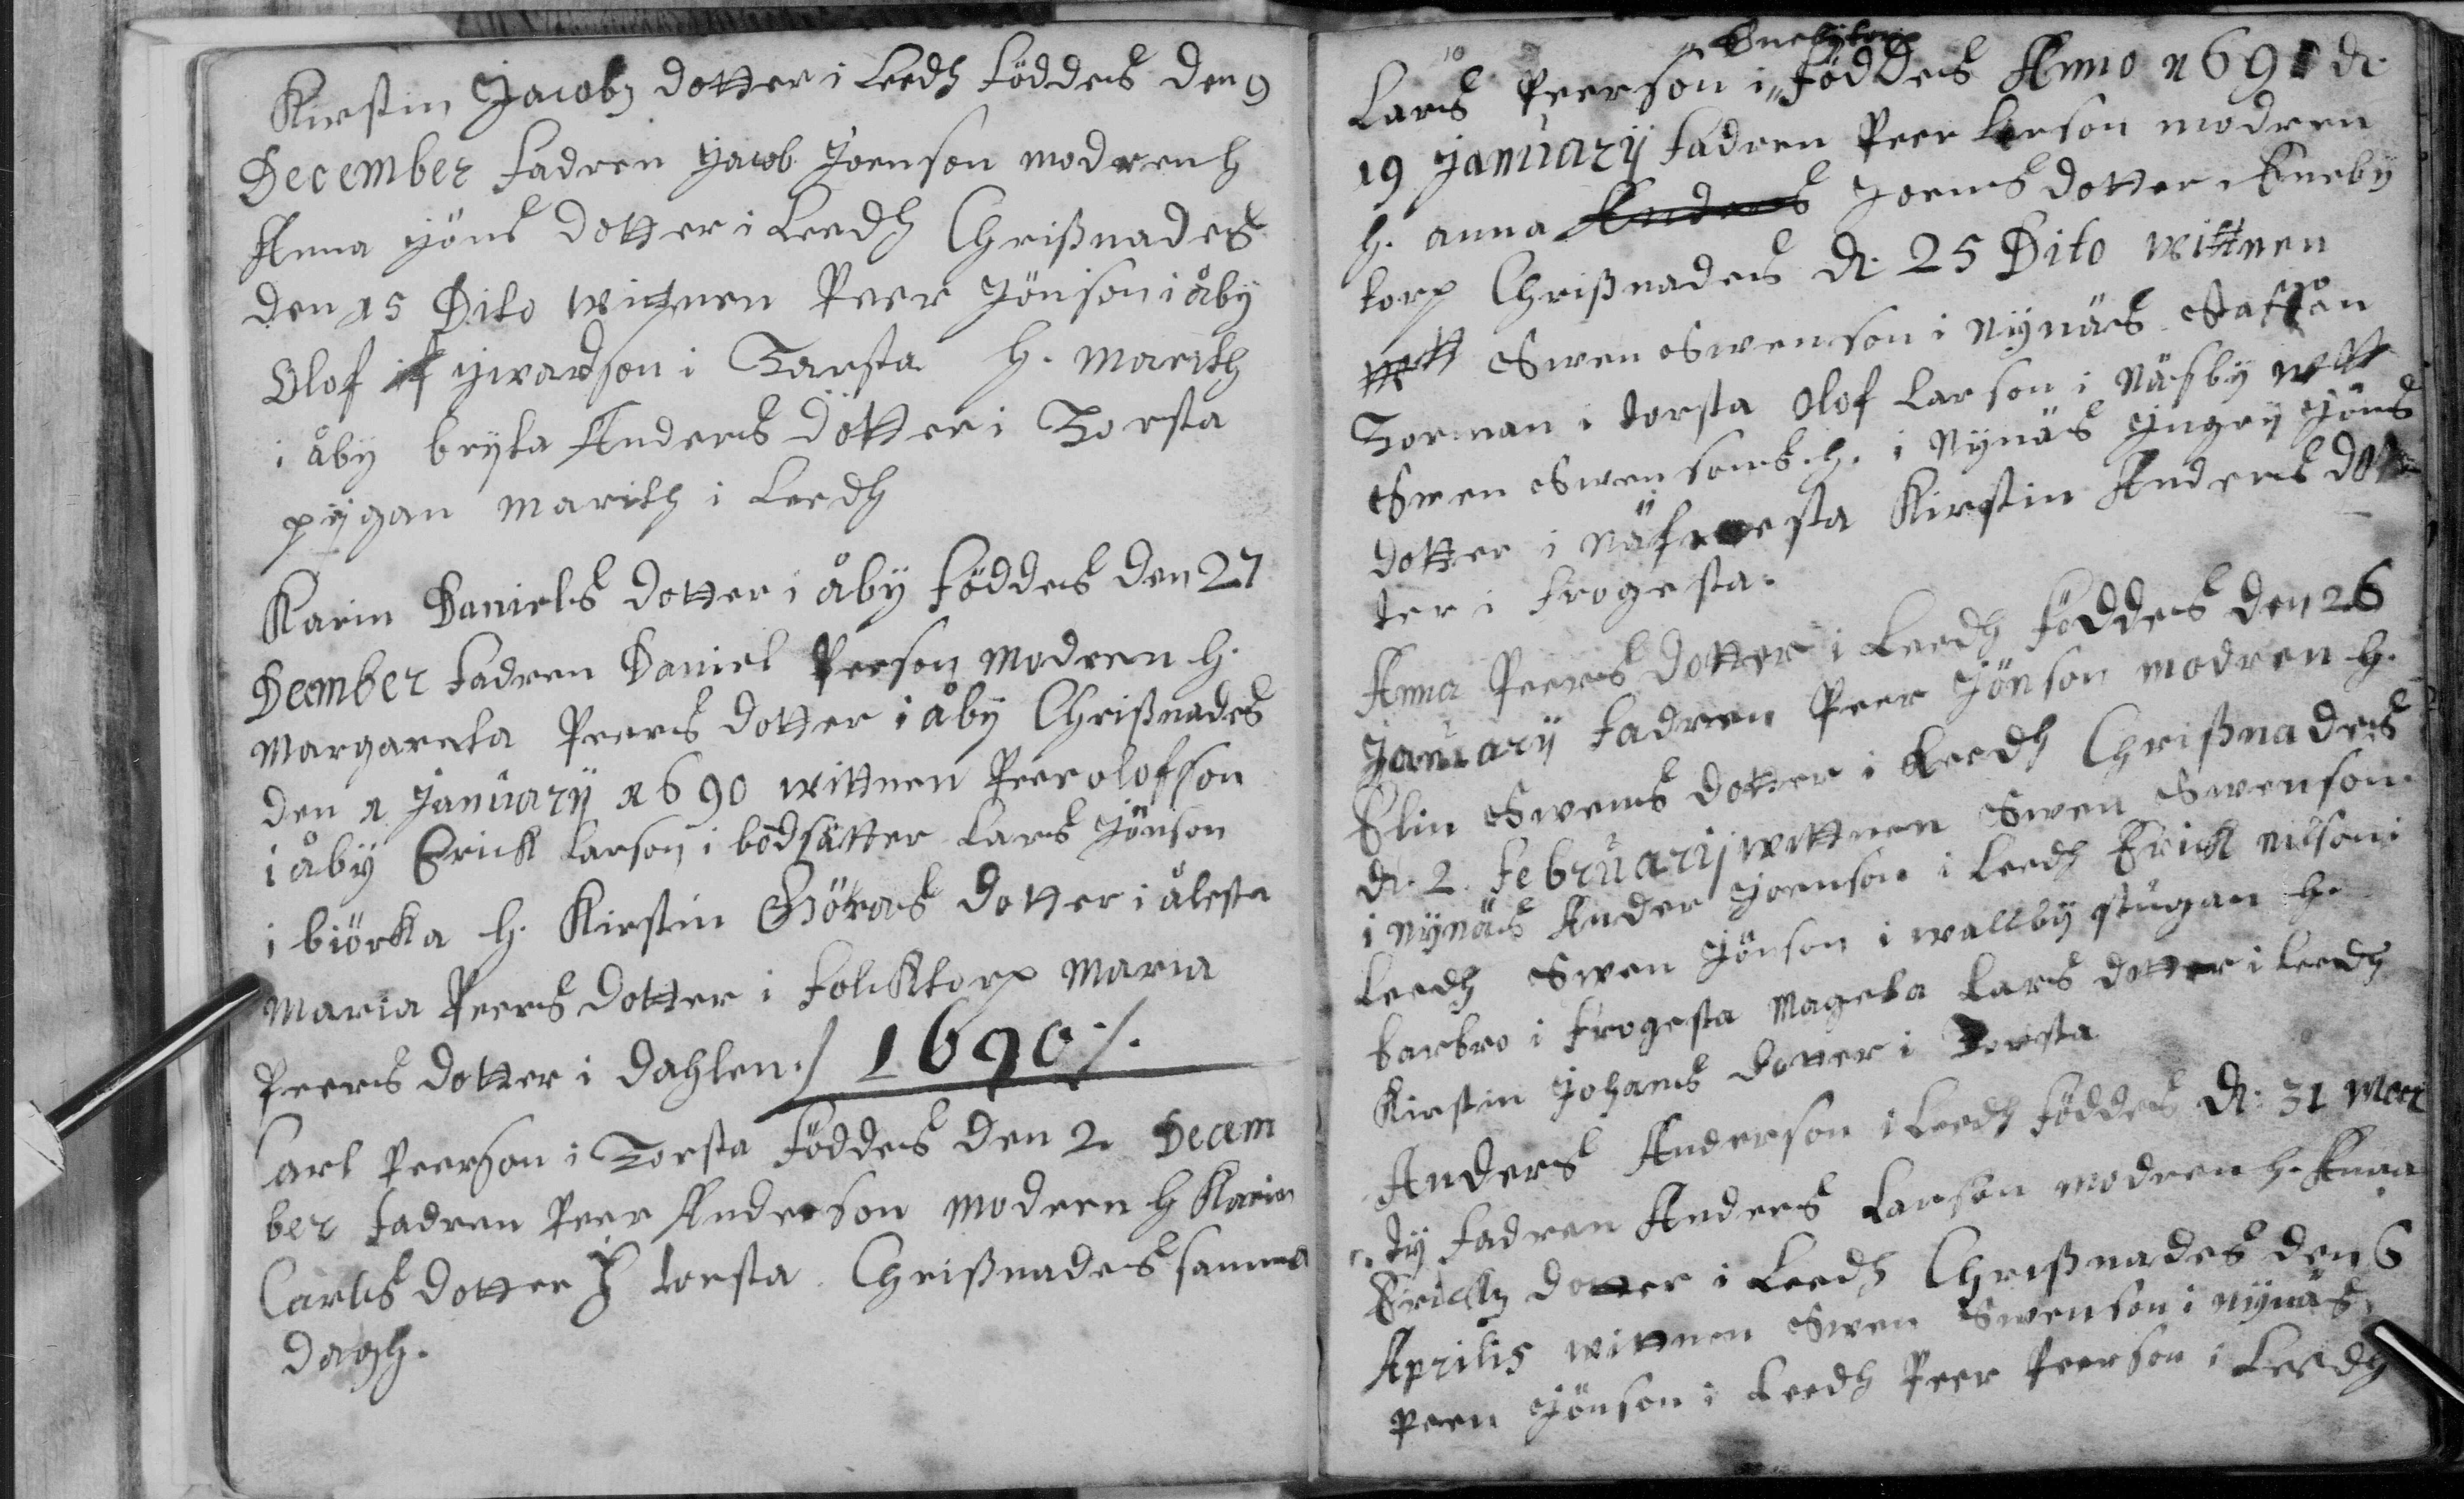 Kirstin Jacobz dotter i Leedh föddes den 9
December fadren Jacob Joenson modren h
Anna Jöns dotter i Leedh Chrißnades
den 15 Dito wittnen Peer Jönson i åby
Olof ijwardson i Torsta h. marith
i åby bryta Anders dötter i Torsta
pijgan marith i Leedh
Karin Daniels dotter i åby föddes den 27
December fadren Daniel Person modren h.
margareta Peers dotter i åby Chrißnades
den 1 Januarij 1690 wittnen Peer olofsson
i åby Erick Larson i bodsätter Lars Jönson
i biörka h. Kirstin Giötars dotter i ålesta
Maria Peers dotter i folcktorp Maria
Peers dotter i dahlen ./ 1690 /.
Carl Peerson i Torsta föddes den 2 Decem
ber fadren Peer Anderson modren h Karin
Carls dotter J torsta Chrißnades samma
dagh.
10
Enebytorp
Lars Peerson i föddes Anno 1691 d.
19 Januarij fadren Peer Larson modren
h. anna Anders Joens dotter i Eneby
torp Chrißnades d. 25 Dito wittnen
Swen Swenson i Nynäs Staffan
Torman i torsta Olof Larson i Näsby
Swen Swensons h. i Nynäs Jngrij Jöns
dotter i Näfwesta Kirstin Anders dot
ter i frogesta.
Anna Peers dotter i Leedh föddes den 26
Januarij fadren Peer Jönson modren h.
Elin Swens dotter i Leedh Chrißnades
d. 2. Februarij wittnen Swen Swenson
i nynäs Ander Joenson i Leedh Erick nilson i
Leedh Swen Jönson i wallby stugan h.
barbro i frogesta Mageta Lars dotter i Leedh
Kirstin Johans dotter i Torsta
Anders Anderson i Leedh föddes d. 31 Mar
tij fadren Anders Larson modren h. Anna
Erickz dotter i Leedh Chrißnades den 6
Aprilis wittnen Swen Swenson i nynäs
Peer Jönson i Leedh Peer Peerson i Leedh